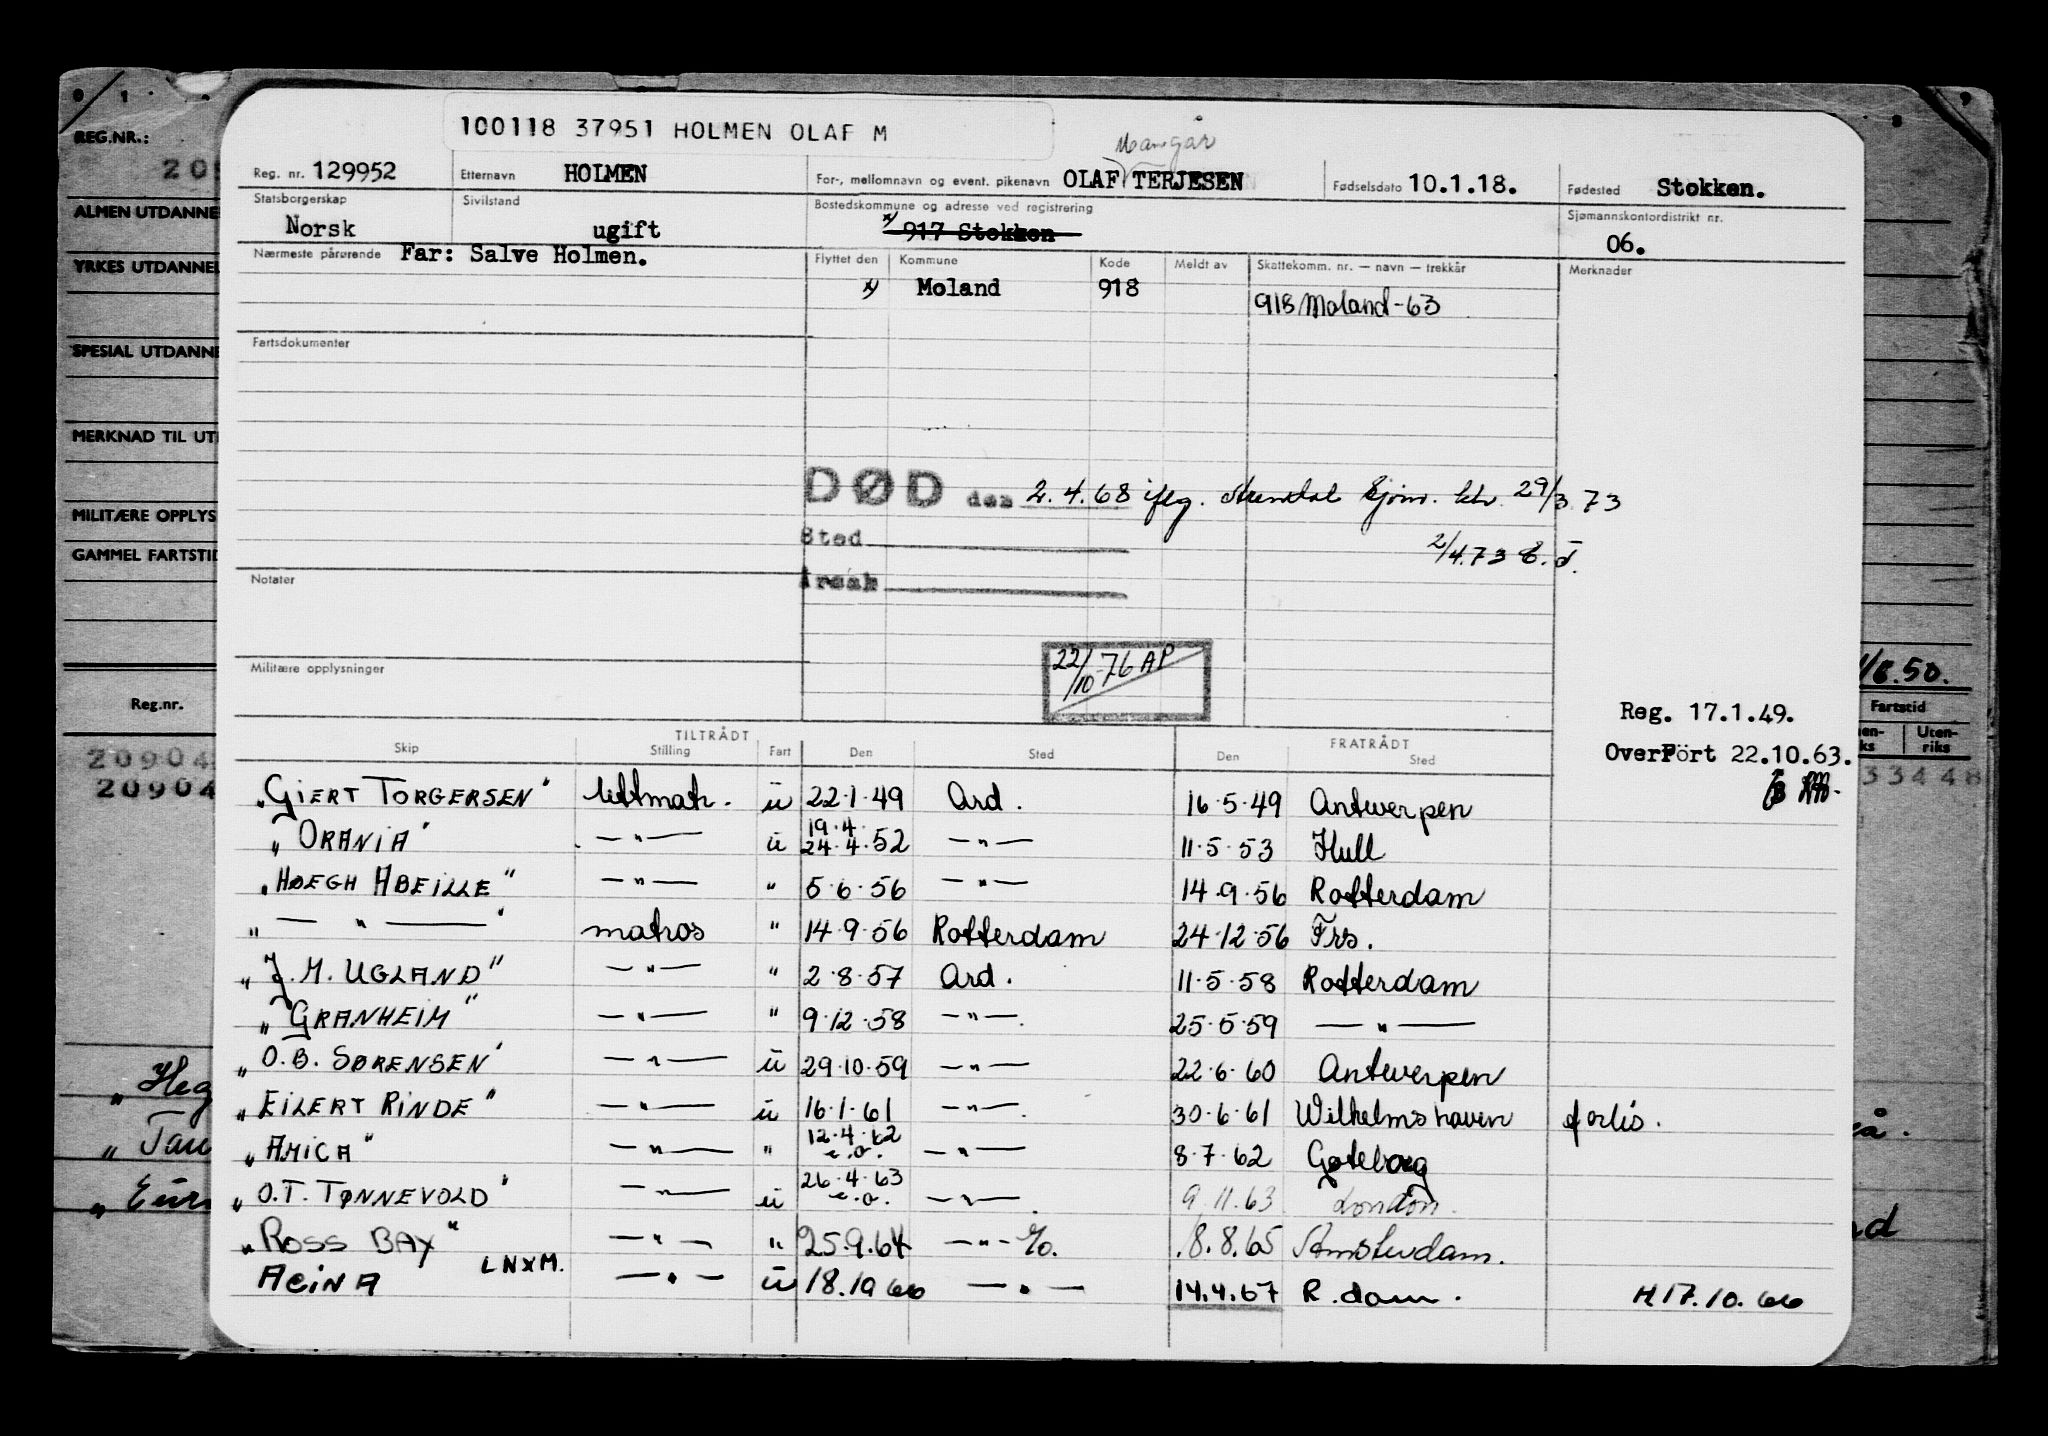 100118 37951 HOLMEN OLAF M
Reg. nr. 129952 Etternavn HOLMEN For-, mellomnavn og event. pikenavn OLAF TERJESEN Fødselsdato 10.1.18. Fødested Stokken.
Statsborgerskap Norsk Sivilstand ugift Bostedskommune og adresse ved registrering x) 917 Stokken Sjømannskontordistrikt nr. 06.
Nærmeste pårørende Far: Salve Holmen. Flyttet den Kommune Kode Meldt av Skattekomm. nr. — navn — trekkår Merknader
x) Moland 918 918 Moland-63
Fartsdokumenter
DØD den 2.4.68 iflg. Sjøm. ktr. 29/3 73
Sted
2/4.73 E.J.
Årsak
Notater
22/10-76 AP
Militære opplysninger
Reg. 17.1.49.
Overført 22.10.63.
TILTRÅDT FRATRÅDT
Skip Stilling Fart Den Sted Den Sted
"GIERT TORGERSEN" lettmatr. u 22·1·49 Ard. 16·5·49 Antwerpen
"ORANIA" —"— u 19·4· 24·4·52 —"— 11·5·53 Hull
"HØEGH ABEILLE" —"— " 5·6·56 —"— 14·9·56 Rotterdam
"— " —" matros " 14·9·56 Rotterdam 24·12·56 Frs.
"J.M. UGLAND" —"— " 2·8·57 Ard. 11·5·58 Rotterdam
"GRANHEIM" —"— " 9·12·58 —"—. 25·5·59 —"—
"O.B. SØRENSEN" —"— u 29·10·59 —"— 22·6·60 Antwerpen
"EILERT RINDE" —"— u 16·1·61 —"—. 30·6·61 Wilhelmshaven forlis.
"AMICA" —"— " 12·4·62 e.o. —"— 8·7·62 Gøteborg
"O.T. TØNNEVOLD" —"— u 26·4·63 e.o. —"—. 9.11.63 London.
"ROSS BAY" —"— " 25.9.64 —"— 8.8.65 Amsterdam.
ACINA LNXM. —"— u 18.10 66 —"— 14.4.67 R.dam. H 17.10.66
REG.NR.:
ALMEN UTDANNE
YRKES UTDANNEL
SPESIAL UTDANNE
MERKNAD TIL UT
MILITÆRE OPPLYS
GAMMEL FARTSTID
Reg.nr.
20904
20904
"Heg
"Tau
/6.50.
Fartstid
Uten-
riks
33448